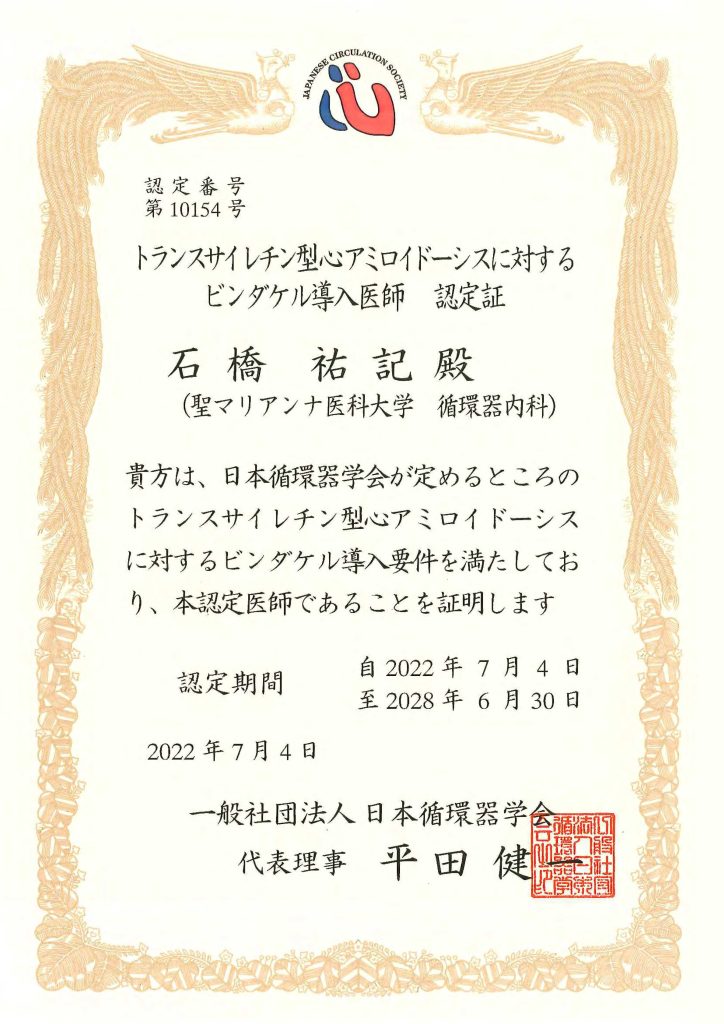 JAPANESE CIRCULATION SOCIETY
認定番号
第10154号
トランスサイレチン型心アミロイドーシスに対する
ビンダケル導入医師 認定証
石橋 祐記殿
(聖マリアンナ医科大学 循環器内科)
貴方は、日本循環器学会が定めるところの
トランスサイレチン型心アミロイドーシス
に対するビンダケル導入要件を満たしてお
り、本認定医師であることを証明します
認定期間
自2022年7月4日
至2028年6月30日
2022年7月4日
一般社団法人 日本循環器学会
代表理事 平田健一